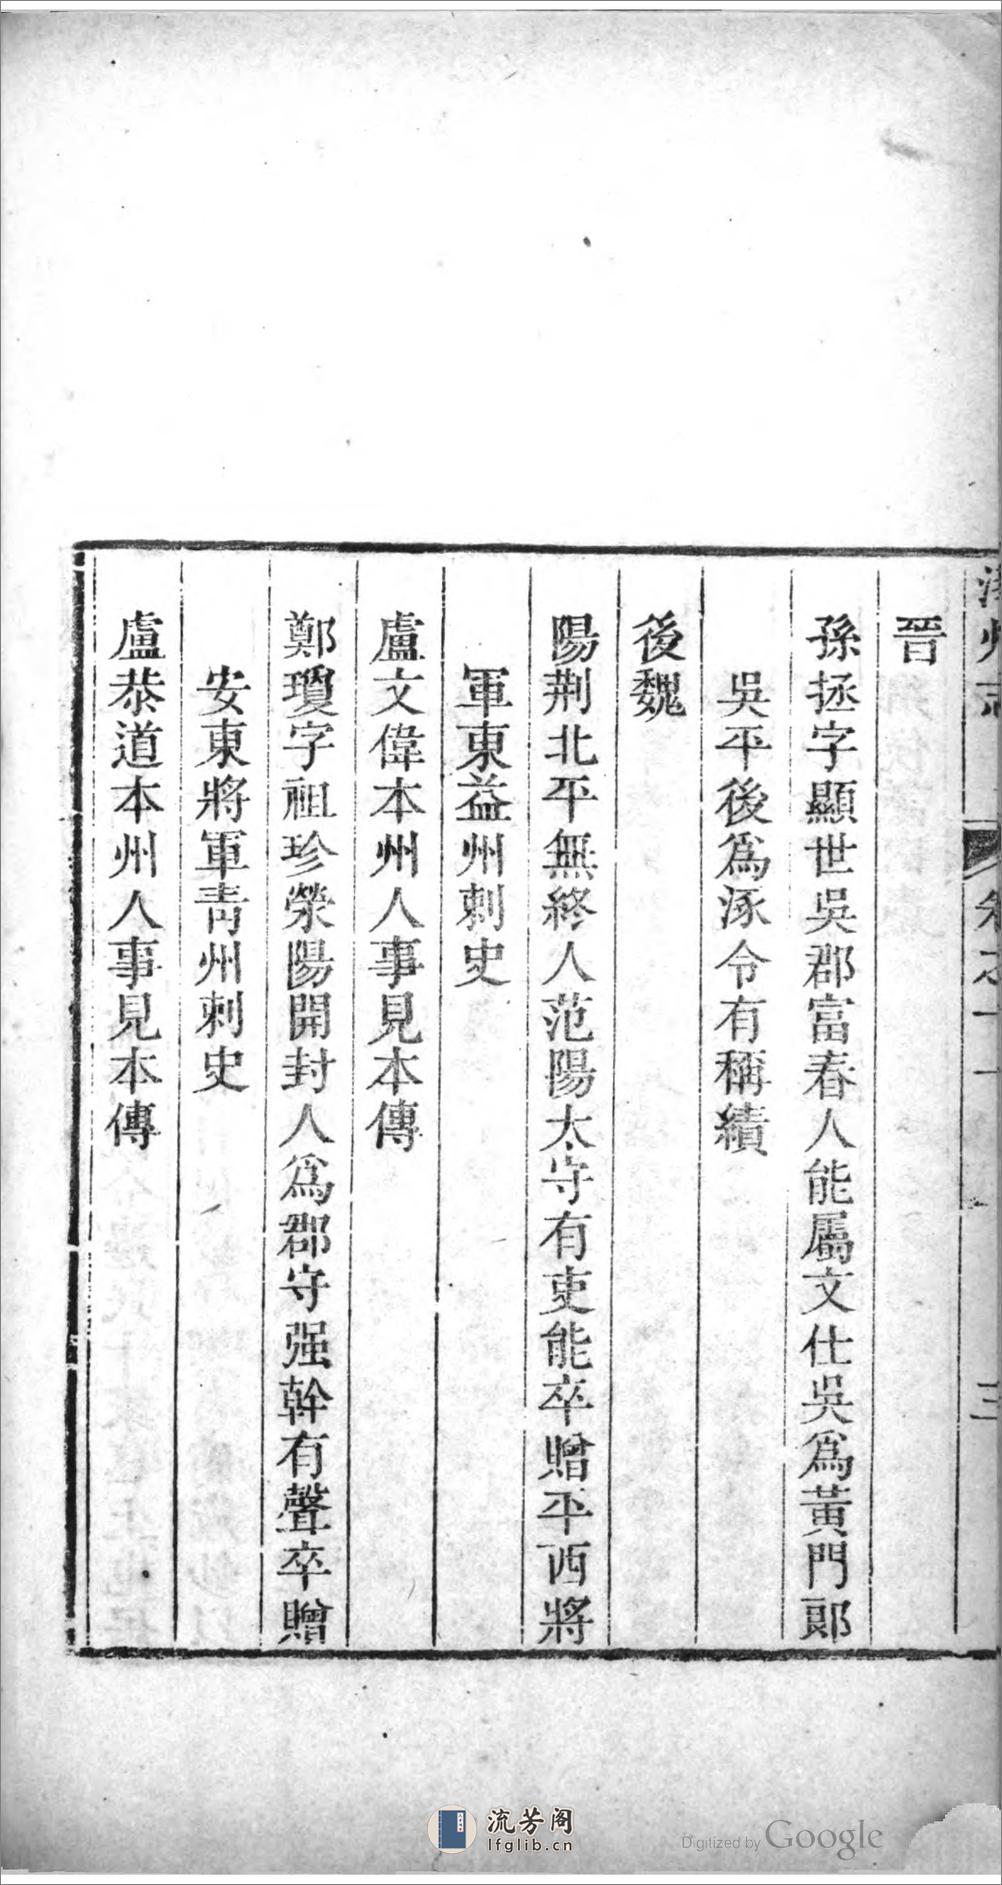 晉
孫拯字顯世吳郡富春人能屬文仕吳爲黃門郎
吳平後爲涿令有稱績
後魏
陽荆北平無終人范陽太守有吏能卒贈平西將
軍東益州刺史
盧文偉本州人事見本傳
鄭瓊字祖珍滎陽開封人爲郡守强幹有聲卒贈
安東將軍靑州刺史
盧恭道本州人事見本傳
流芳阁
lfglib.cn
Digitized by Google